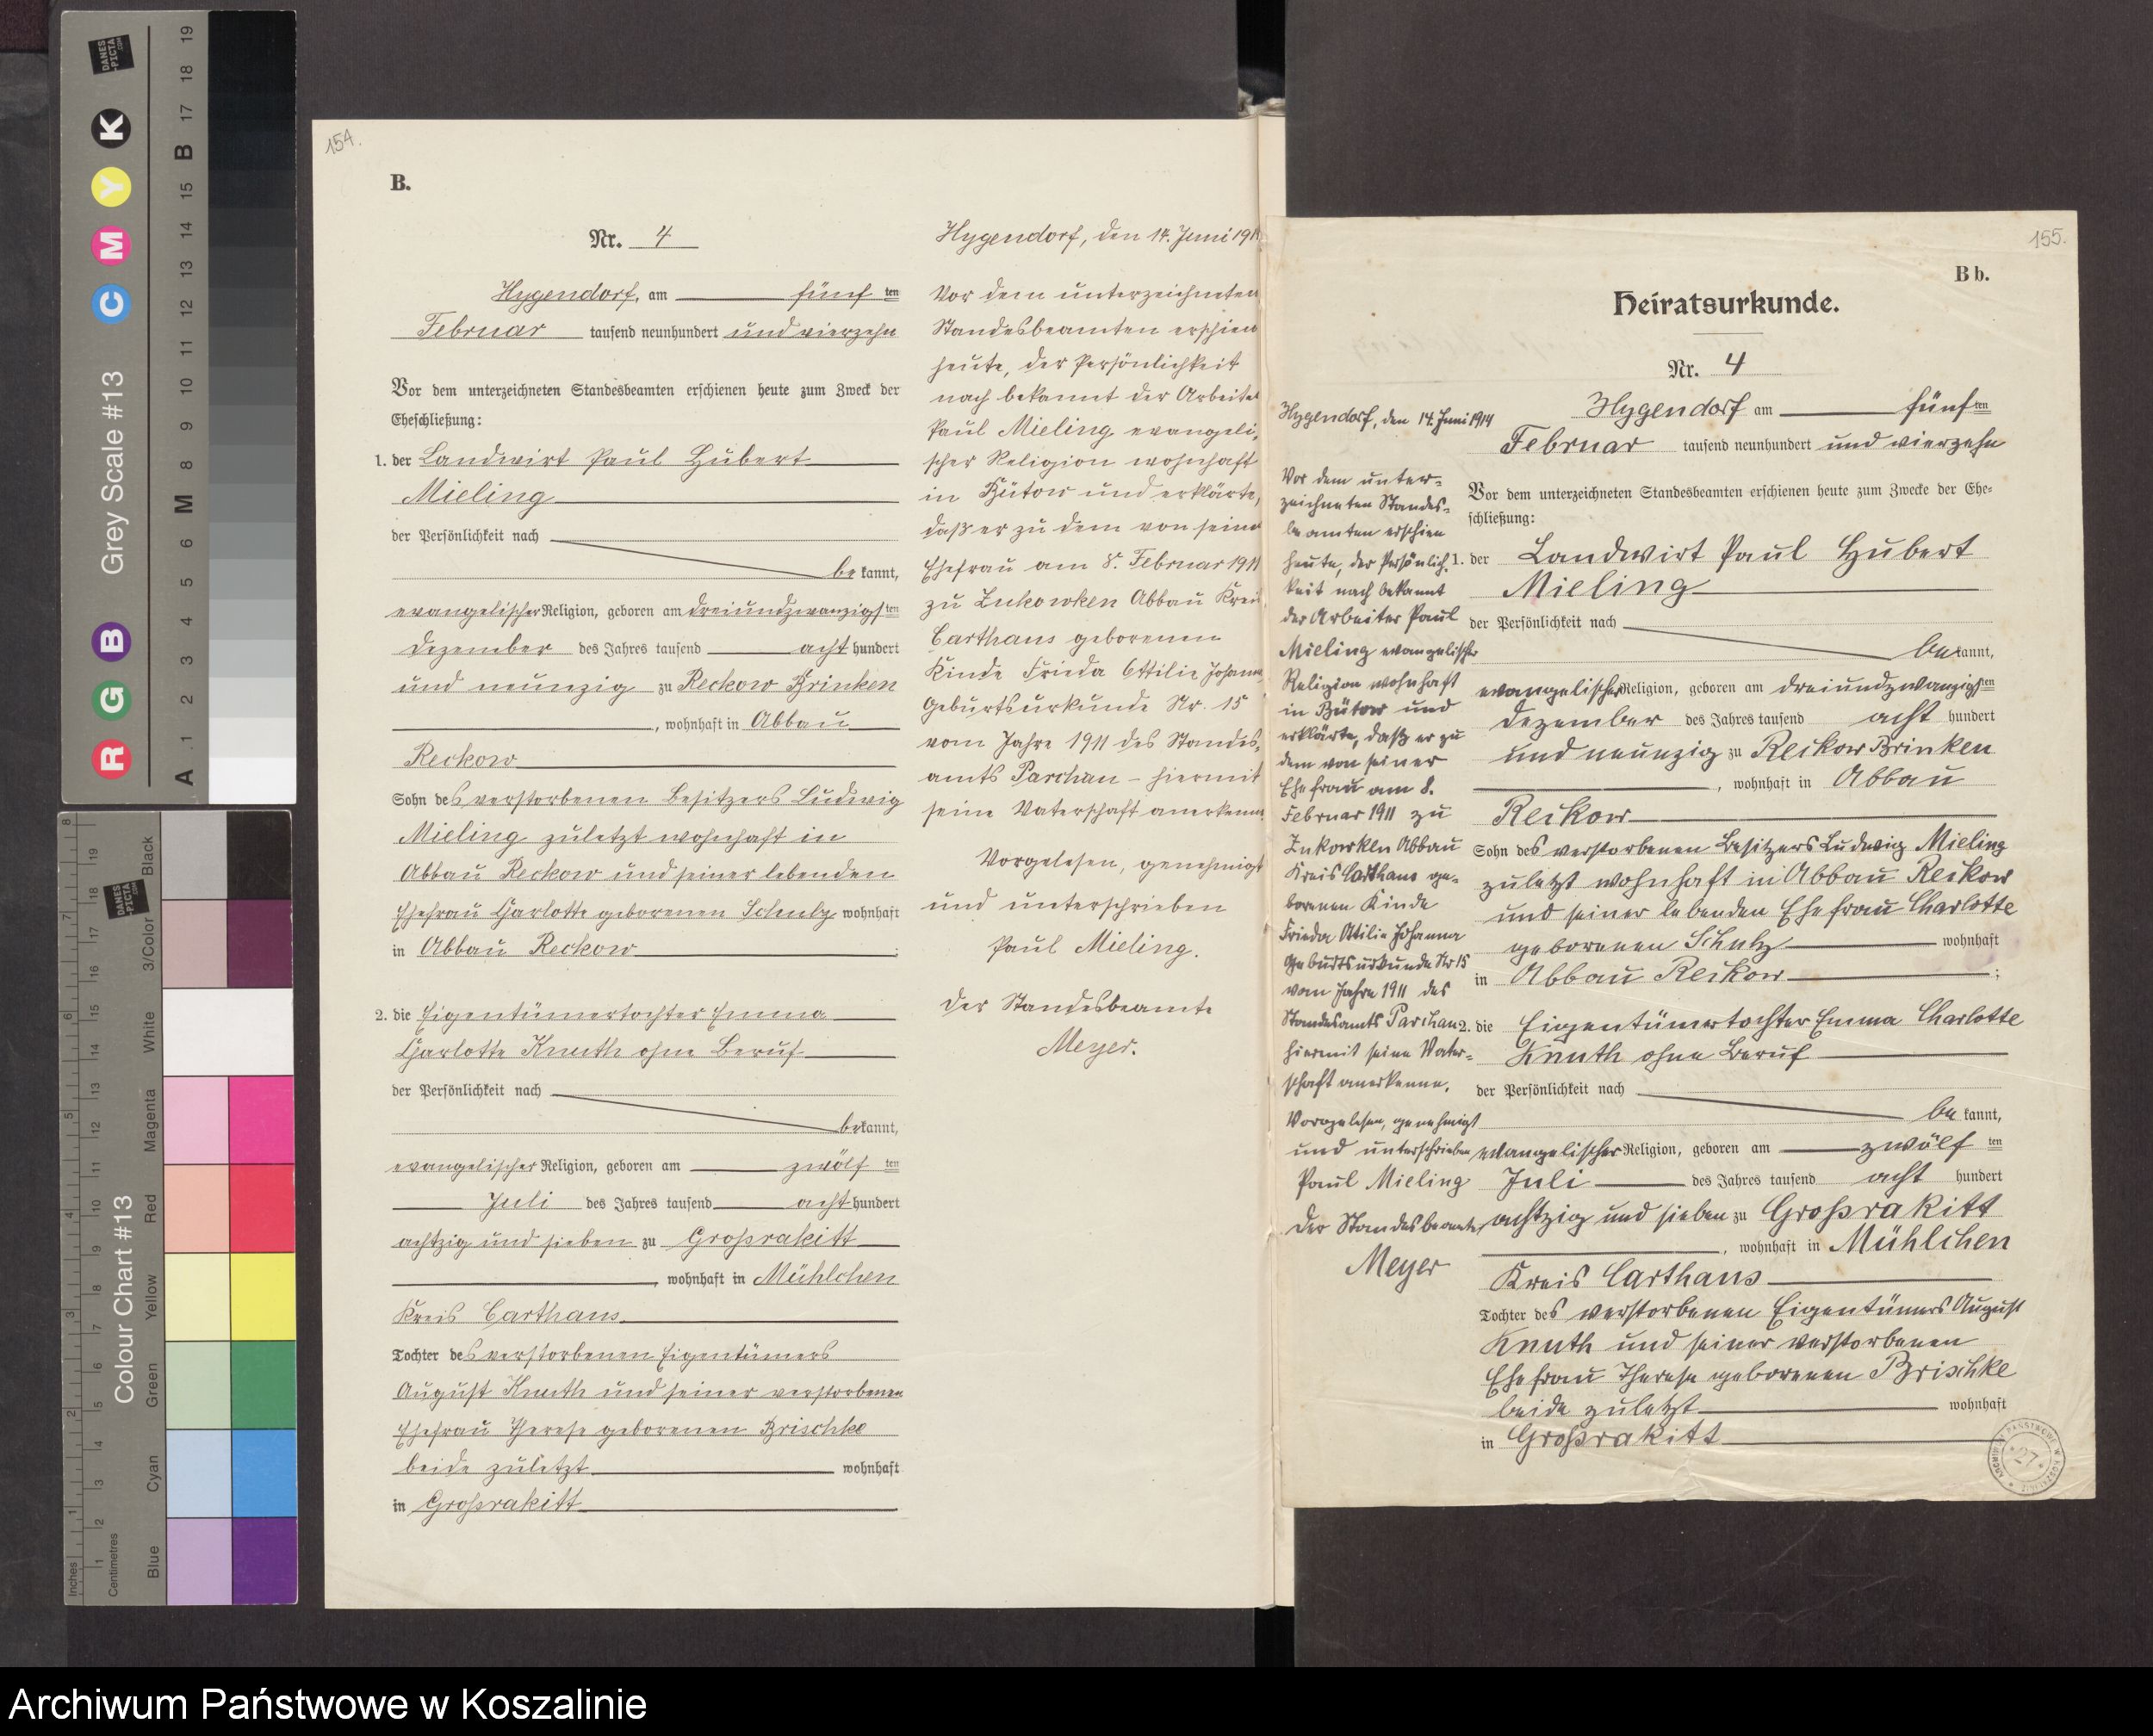 154.
B.
Nr. 4
Hygendorf, am fünf ten
Februar tausend neunhundert und vierzehn
Vor dem unterzeichneten Standesbeamten erschienen heute zum Zweck der
Eheschließung:
1. der Landwirt Paul Hubert
Mieling
der Persönlichkeit nach
be kannt,
evangelischer Religion, geboren am dreiundzwanzigsten
Dezember des Jahres tausend acht hundert
und neunzig zu Reckow Brinken
, wohnhaft in Abbau
Reckow
Sohn des verstorbenen Besitzers Ludwig
Mieling zuletzt wohnhaft in
Abbau Reckow und seiner lebenden
Ehefrau Charlotte geborenen Schulz wohnhaft
in Abbau Reckow ;
2. die Eigentümertochter Emma
Charlotte Knuth ohne Beruf
der Persönlichkeit nach
be kannt,
evangelischer Religion, geboren am zwölf ten
Juli des Jahres tausend acht hundert
achtzig und sieben zu Großrakitt
, wohnhaft in Mühlchen
Kreis Carthaus
Tochter des verstorbenen Eigentümers
August Knuth und seiner verstorbenen
Ehefrau Therese geborenen Brischke
beide zuletzt wohnhaft
in Großrakitt
Hygendorf, den 14. Juni 191
Vor dem unterzeichneten
Standesbeamten erschien
heute, der Persönlichkeit
nach bekannt der Arbeiter
Paul Mieling evangeli-
scher Religion wohnhaft
in Bütow und erklärte,
daß er zu dem von seiner
Ehefrau am 8. Februar 1911
zu Zukowken Abbau Kreis
Carthaus geborenen
Kinde Frieda Ottilie Johanna
Geburtsurkunde Nr. 15
vom Jahre 1911 des Standes-
amts Parchau - hiermit
seine Vaterschaft anerkenne
Vorgelesen, genehmigt
und unterschrieben
Paul Mieling.
Der Standesbeamte
Meyer.
155.
B b.
Heiratsurkunde.
Nr. 4
Hygendorf am fünf ten
Februar tausend neunhundert und vierzehn
Vor dem unterzeichneten Standesbeamten erschienen heute zum Zwecke der Ehe-
schließung:
1. der Landwirt Paul Hubert
Mieling
der Persönlichkeit nach
be kannt,
evangelischer Religion, geboren am dreiundzwanzigsten
Dezember des Jahres tausend acht hundert
und neunzig zu Reckow Brinken
, wohnhaft in Abbau
Reckow
Sohn des verstorbenen Besitzers Ludwig Mieling
zuletzt wohnhaft in Abbau Reckow
und seiner lebenden Ehefrau Charlotte
geborenen Schulz wohnhaft
in Abbau Reckow ;
2. die Eigentümertochter Emma Charlotte
Knuth ohne Beruf
der Persönlichkeit nach
be kannt,
evangelischer Religion, geboren am zwölf ten
Juli des Jahres tausend acht hundert
achtzig und sieben zu Großrakitt
, wohnhaft in Mühlchen
Kreis Carthaus
Tochter des verstorbenen Eigentümers August
Knuth und seiner verstorbenen
Ehefrau Therese geborenen Brischke
beide zuletzt wohnhaft
in Großrakitt
Hygendorf, den 14. Juni 1914
Vor dem unter-
zeichneten Standes-
beamten erschien
heute, der Persönlich-
keit nach bekannt
der Arbeiter Paul
Mieling evangelischer
Religion wohnhaft
in Bütow und
erklärte, daß er zu
dem von seiner
Ehefrau am 8.
Februar 1911 zu
Zukowken Abbau
Kreis Carthaus ge-
borenen Kinde
Frieda Ottilie Johanna
Geburtsurkunde Nr 15
vom Jahre 1911 des
Standesamts Parchau
hiermit seine Vater-
schaft anerkenne.
Vorgelesen, genehmigt
und unterschrieben
Paul Mieling
Der Standesbeamte
Meyer
ARCHIWUM PAŃSTWOWE W KOSZALINIE
27
DANES
-PICTA
.COM
Grey Scale #13
R G B C M Y K
A 1 2 3 4 5 6 M 8 9 10 11 12 13 14 15 B 17 18 19
DANES
-PICTA
.COM
Colour Chart #13
Blue Cyan Green Yellow Red Magenta White 3/Color Black
Inches 1 2 3 4 5 6 7 8
Centimetres 1 2 3 4 5 6 7 8 9 10 11 12 13 14 15 16 17 18 19
Archiwum Państwowe w Koszalinie